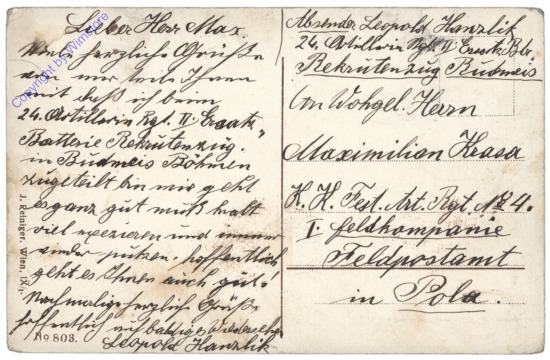 Lieber Herr Max.
Viele herzliche Grüße
von mir teile Ihnen
mit daß ich beim
24. Artillerie Rgt. II. Ersatz
Batterie Rekrutenzug.
in Budweis Böhmen
zugeteilt bin mir geht
es ganz gut muß halt
viel exezieren und immer
wieder putzen. hoffentlich
geht es Ihnen auch gut.
Nochmalige herzlich Grüße
hoffentlich auf baldiges Wiedersehen
Leopold Hanzlik
No 803.
J. Reiniger, Wien, IX/1.
Copyright by Wirnitzre
Absender Leopold Hanzlik
24. Artillerie Rgt. II. Ersatz Btr
Rekrutenzug Budweis
An Wohlgel. Herrn
Maximilian Krasa
K. K. Fest. Art. Rgt. No 4.
I. Feldkompanie
Feldpostamt
in Pola.